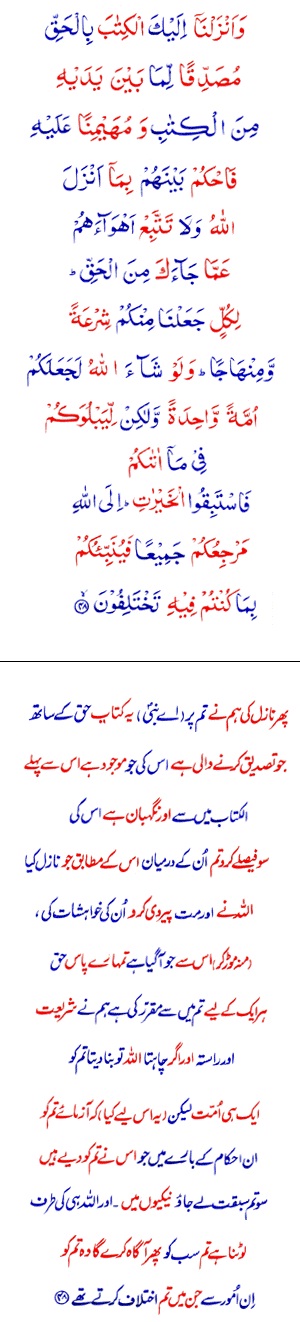 وَاَنْزَلْنَآ اِلَيْكَ الْكِتٰبَ بِالْحَقِّ
مُصَدِّقًا لِّمَا بَيْنَ يَدَيْهِ
مِنَ الْكِتٰبِ وَ مُهَيْمِنًا عَلَيْهِ
فَاحْكُمْ بَيْنَهُمْ بِمَآ اَنْزَلَ
اللّٰهُ وَلَا تَتَّبِعْ اَهْوَآءَهُمْ
عَمَّا جَآءَكَ مِنَ الْحَقِّ ؕ
لِكُلٍّ جَعَلْنَا مِنْكُمْ شِرْعَةً
وَّمِنْهَاجًا ؕ وَلَوْ شَآءَ اللّٰهُ لَجَعَلَكُمْ
اُمَّةً وَّاحِدَةً وَّلٰكِنْ لِّيَبْلُوَكُمْ
فِيْ مَآ اٰتٰىكُمْ
فَاسْتَبِقُوا الْخَيْرٰتِ ؕ اِلَى اللّٰهِ
مَرْجِعُكُمْ جَمِيْعًا فَيُنَبِّئُكُمْ
بِمَا كُنْتُمْ فِيْهِ تَخْتَلِفُوْنَ ۙ﴿۴۸﴾
پھر نازل کی ہم نے تم پر (اے نبیؐ) یہ کتاب حق کے ساتھ
جو تصدیق کرنے والی ہے اس کی جو موجود ہے اس سے پہلے
الکتاب میں سے اور نگہبان ہے اس کی
سو فیصلے کرو تم اُن کے درمیان اس کے مطابق جو نازل کیا
اللہ نے اور مت پیروی کرو اُن کی خواہشات کی ،
(منہ موڑ کر) اس سے جو آگیا ہے تمہارے پاس حق
ہر ایک کے لیے تم میں سے مقرر کی ہے ہم نے شریعت
اور راستہ اور اگر چاہتا اللہ تو بنا دیتا تم کو
ایک ہی اُمّت لیکن (یہ اس لیے کیا) کہ آزمائے تم کو
ان احکام کے بارے میں جو اس نے تم کو دیے ہیں
سو تم سبقت لے جاؤ نیکیوں میں ۔ اور اللہ ہی کی طرف
لوٹنا ہے تم سب کو پھر آگاہ کرے گا وہ تم کو
اِن اُمور سے جن میں تم اختلاف کرتے تھے ﴿۴۸﴾